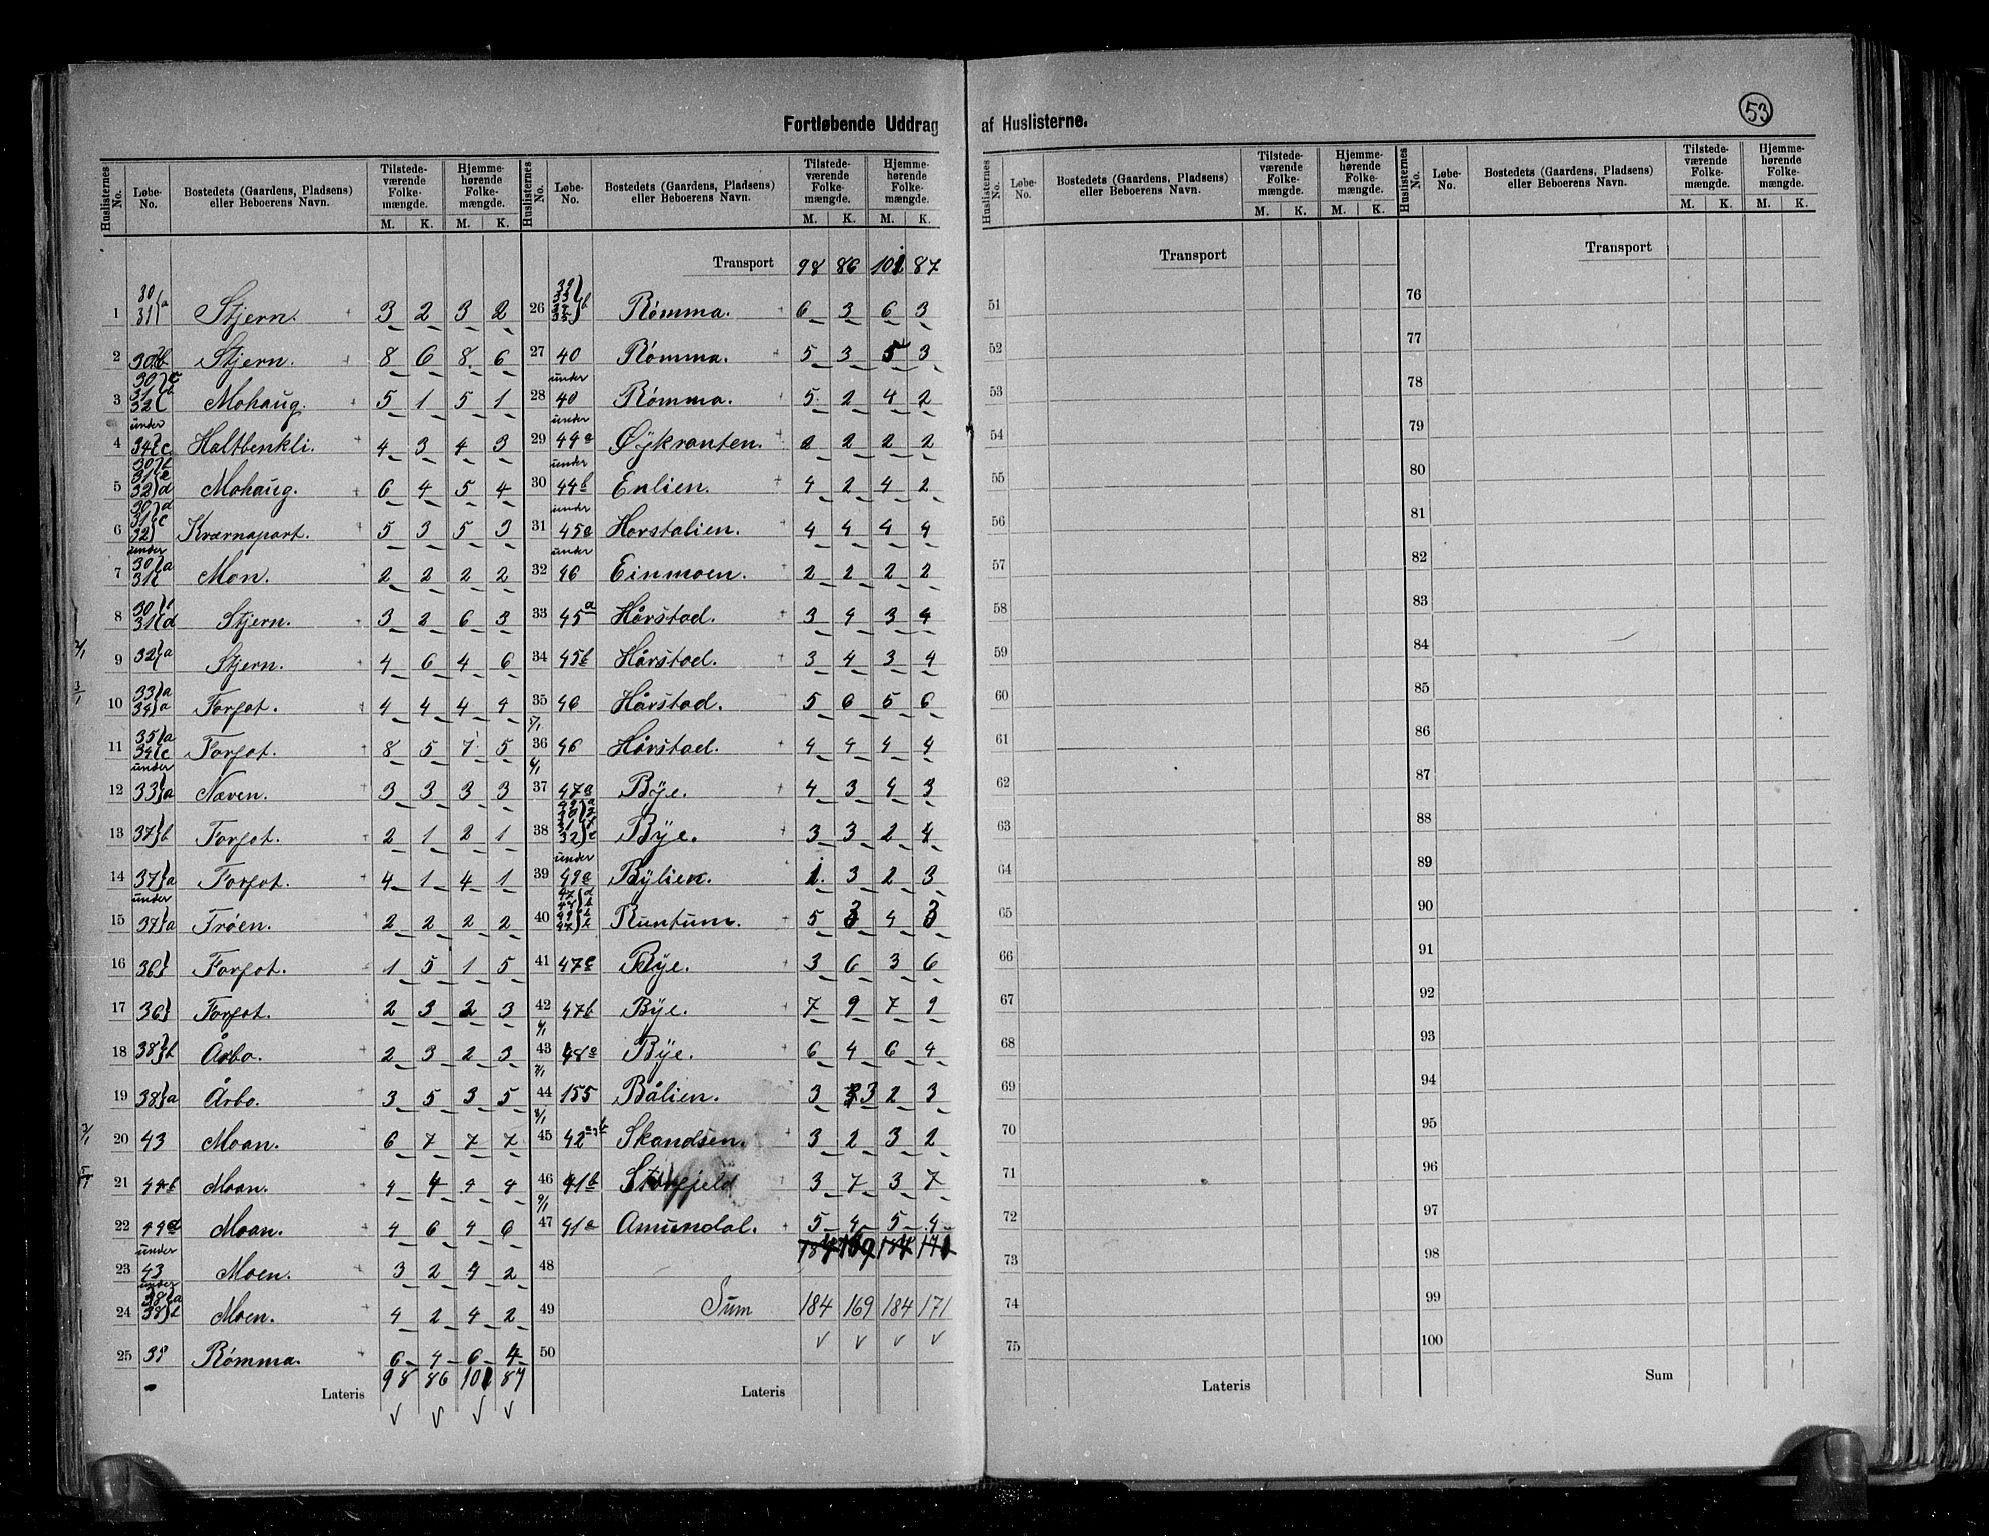 53
Fortløbende Uddrag af Huslisterne.
Huslisternes No. Løbe-No. Bostedets (Gaardens, Pladsens) eller Beboerens Navn. Tilstedeværende Folkemængde. M. K. Hjemmehørende Folkemængde. M. K.
1 30 31 a Stjern. 3 2 3 2
2 30 b Stjern. 8 6 8 6
3 30 31 32 Mohaug. 5 1 5 1
4 under 34 c Haltbenkli. 4 3 4 3
5 30 31 32 d Mohaug. 6 4 5 4
6 30 31 32 Kværnapart. 5 3 5 3
7 under 30 31 a Mon. 2 2 2 2
8 30 31 d Stjern. 3 2 6 3
9 32 a Stjern. 4 6 4 6
10 33 a 34 a Forfot. 4 4 4 4
11 35 a 34 c Forfot. 8 5 7 5
12 under 33 a Næven. 3 3 3 3
13 37 b Forfot. 2 1 2 1
14 37 a Forfot. 4 1 4 1
15 under 37 a Trøen. 2 2 2 2
16 36 Forfot. 1 5 1 5
17 36 Forfot. 2 3 2 3
18 38 b Årbo. 2 3 2 3
19 38 a Årbo. 3 5 3 5
20 43 Moan. 6 7 7 7
21 44 b Moan. 4 4 4 4
22 44 d Moan. 4 6 4 6
23 under 43 Moen. 3 2 4 2
24 under 38 a 38 b Moen. 4 2 4 2
25 39 Rømma. 6 4 6 4
98 86 101 87
Lateris
Huslisternes No. Løbe-No. Bostedets (Gaardens, Pladsens) eller Beboerens Navn. Tilstedeværende Folkemængde. M. K. Hjemmehørende Folkemængde. M. K.
Transport 98 86 101 87
26 Rømma. 6 3 6 3
27 40 Rømma. 5 3 5 3
28 under 40 Rømma. 5 2 4 2
29 under 44 a Øykranten. 2 2 2 2
30 under 44 b Enlien. 4 2 4 2
31 under 45 a Horstalien. 4 4 4 4
32 under 46 Einmoen. 2 2 2 2
33 45 a Hårstad. 3 4 3 4
34 45 b Hårstad. 3 4 3 4
35 46 Hårstad. 5 6 5 6
36 46 Hårstad. 4 4 4 4
37 47 a Bÿe. 4 3 4 3
38 Bÿe. 3 3 2 4
39 under 49 a Bÿlien. 1 3 2 3
40 Runtum. 5 3 4 3
41 47 c Bÿe. 3 6 3 6
42 47 b Bÿe. 7 9 7 9
43 48 a Bÿe. 6 4 6 4
44 155 Bålien. 3 3 2 3
45 42 Skandsen. 3 2 3 2
46 41 b Storfjeld 3 7 3 7
47 41 a Amundal. 5 4 5 4
184 169 184 171
48
49 Sum 184 169 184 171
50
Lateris
Huslisternes No. Løbe-No. Bostedets (Gaardens, Pladsens) eller Beboerens Navn. Tilstedeværende Folkemængde. M. K. Hjemmehørende Folkemængde. M. K.
Transport
51
52
53
54
55
56
57
58
59
60
61
62
63
64
65
66
67
68
69
70
71
72
73
74
75
Lateris
Huslisternes No. Løbe-No. Bostedets (Gaardens, Pladsens) eller Beboerens Navn. Tilstedeværende Folkemængde. M. K. Hjemmehørende Folkemængde. M. K.
Transport
76
77
78
79
80
81
82
83
84
85
86
87
88
89
90
91
92
93
94
95
96
97
98
99
100
Sum